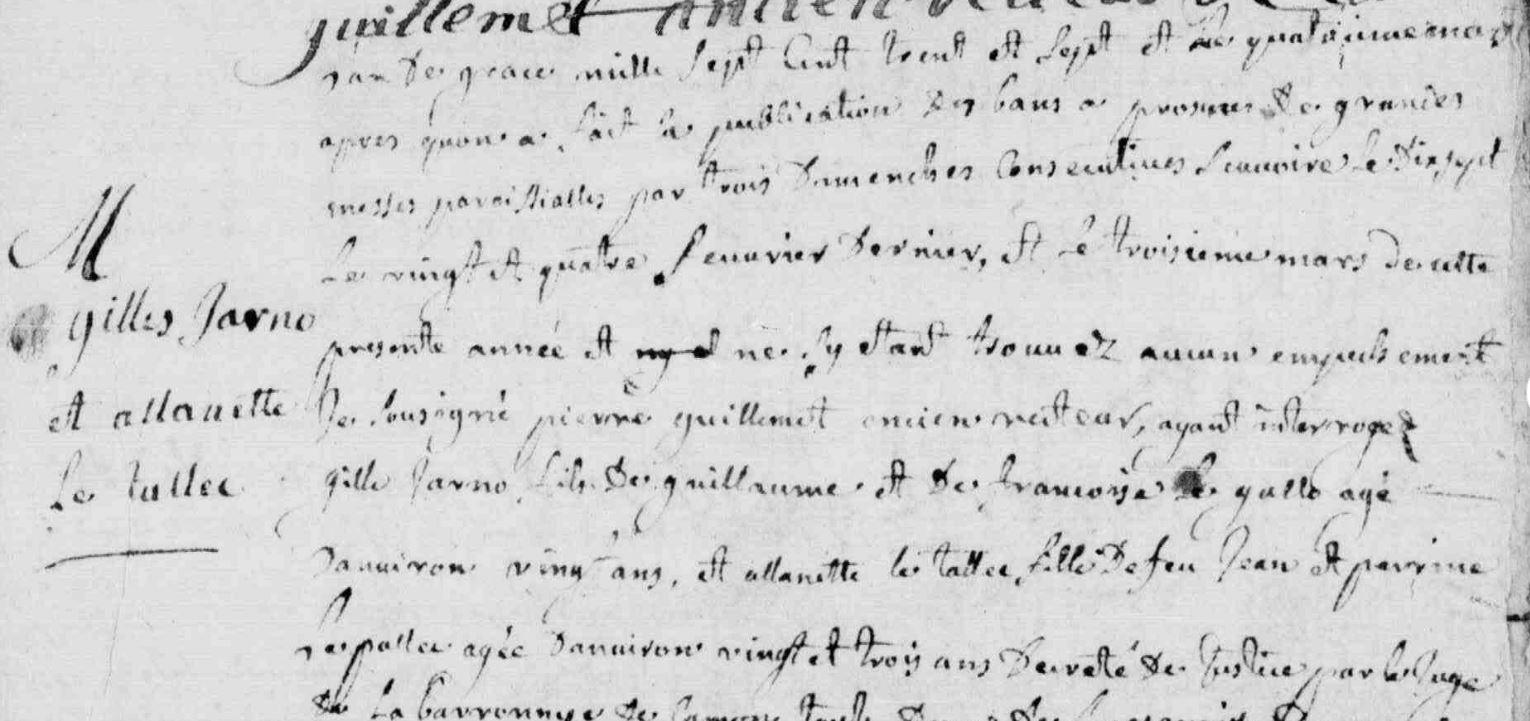 guillemet ancien recteur
L'an de grace mille sept cent trent et sept et le quatorzieme mars
apres qu'on a fait la publication des bans a prosnes de grandes
messes paroissialles par trois dimenches consecutives scauoire le dix sept
Le vingt et quatre feuurier dernier, et le troisieme mars de cette
M
gilles Jarno
et allanette
Le tallec
presente année et ne sy etant trouuez aucun empechsement
Je sousigné pierre guillemet encien recteur, ayant interrogez
gille Jarno fils de guillaume et de francoise le gallo agé
danuiron vingt ans, et allanette le tallec fille de feu Jean et perrine
Le pallec agée danuiron vingt et trois ans decreté de Justice par le Juge
de La barronnye de